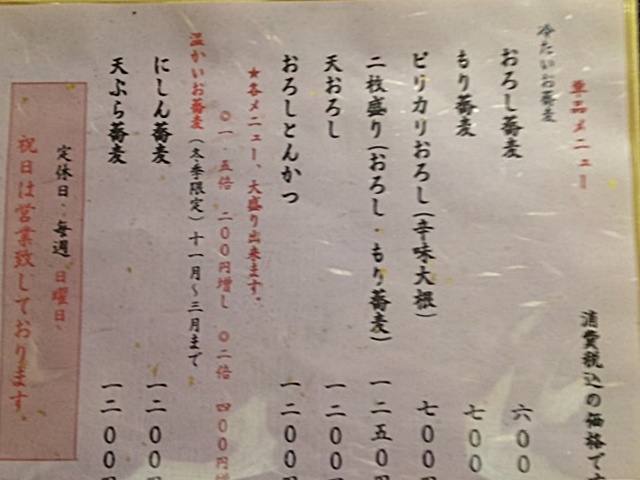 単品メニュー
消費税込の価格です
冷たいお蕎麦
おろし蕎麦 六〇〇
もり蕎麦 七〇〇
ピリカリおろし(辛味大根) 七〇〇
二枚盛り(おろし・もり蕎麦) 一二五〇
天おろし 一二〇〇
おろしとんかつ 一二〇〇
★各メニュー、大盛り出来ます。
〇一・五倍 二〇〇円増し 〇二倍 四〇〇円増
温かいお蕎麦(冬季限定)十一月~三月まで
にしん蕎麦 一二〇〇
天ぷら蕎麦 一二〇〇
定休日・毎週 日曜日、
祝日は営業致しております。